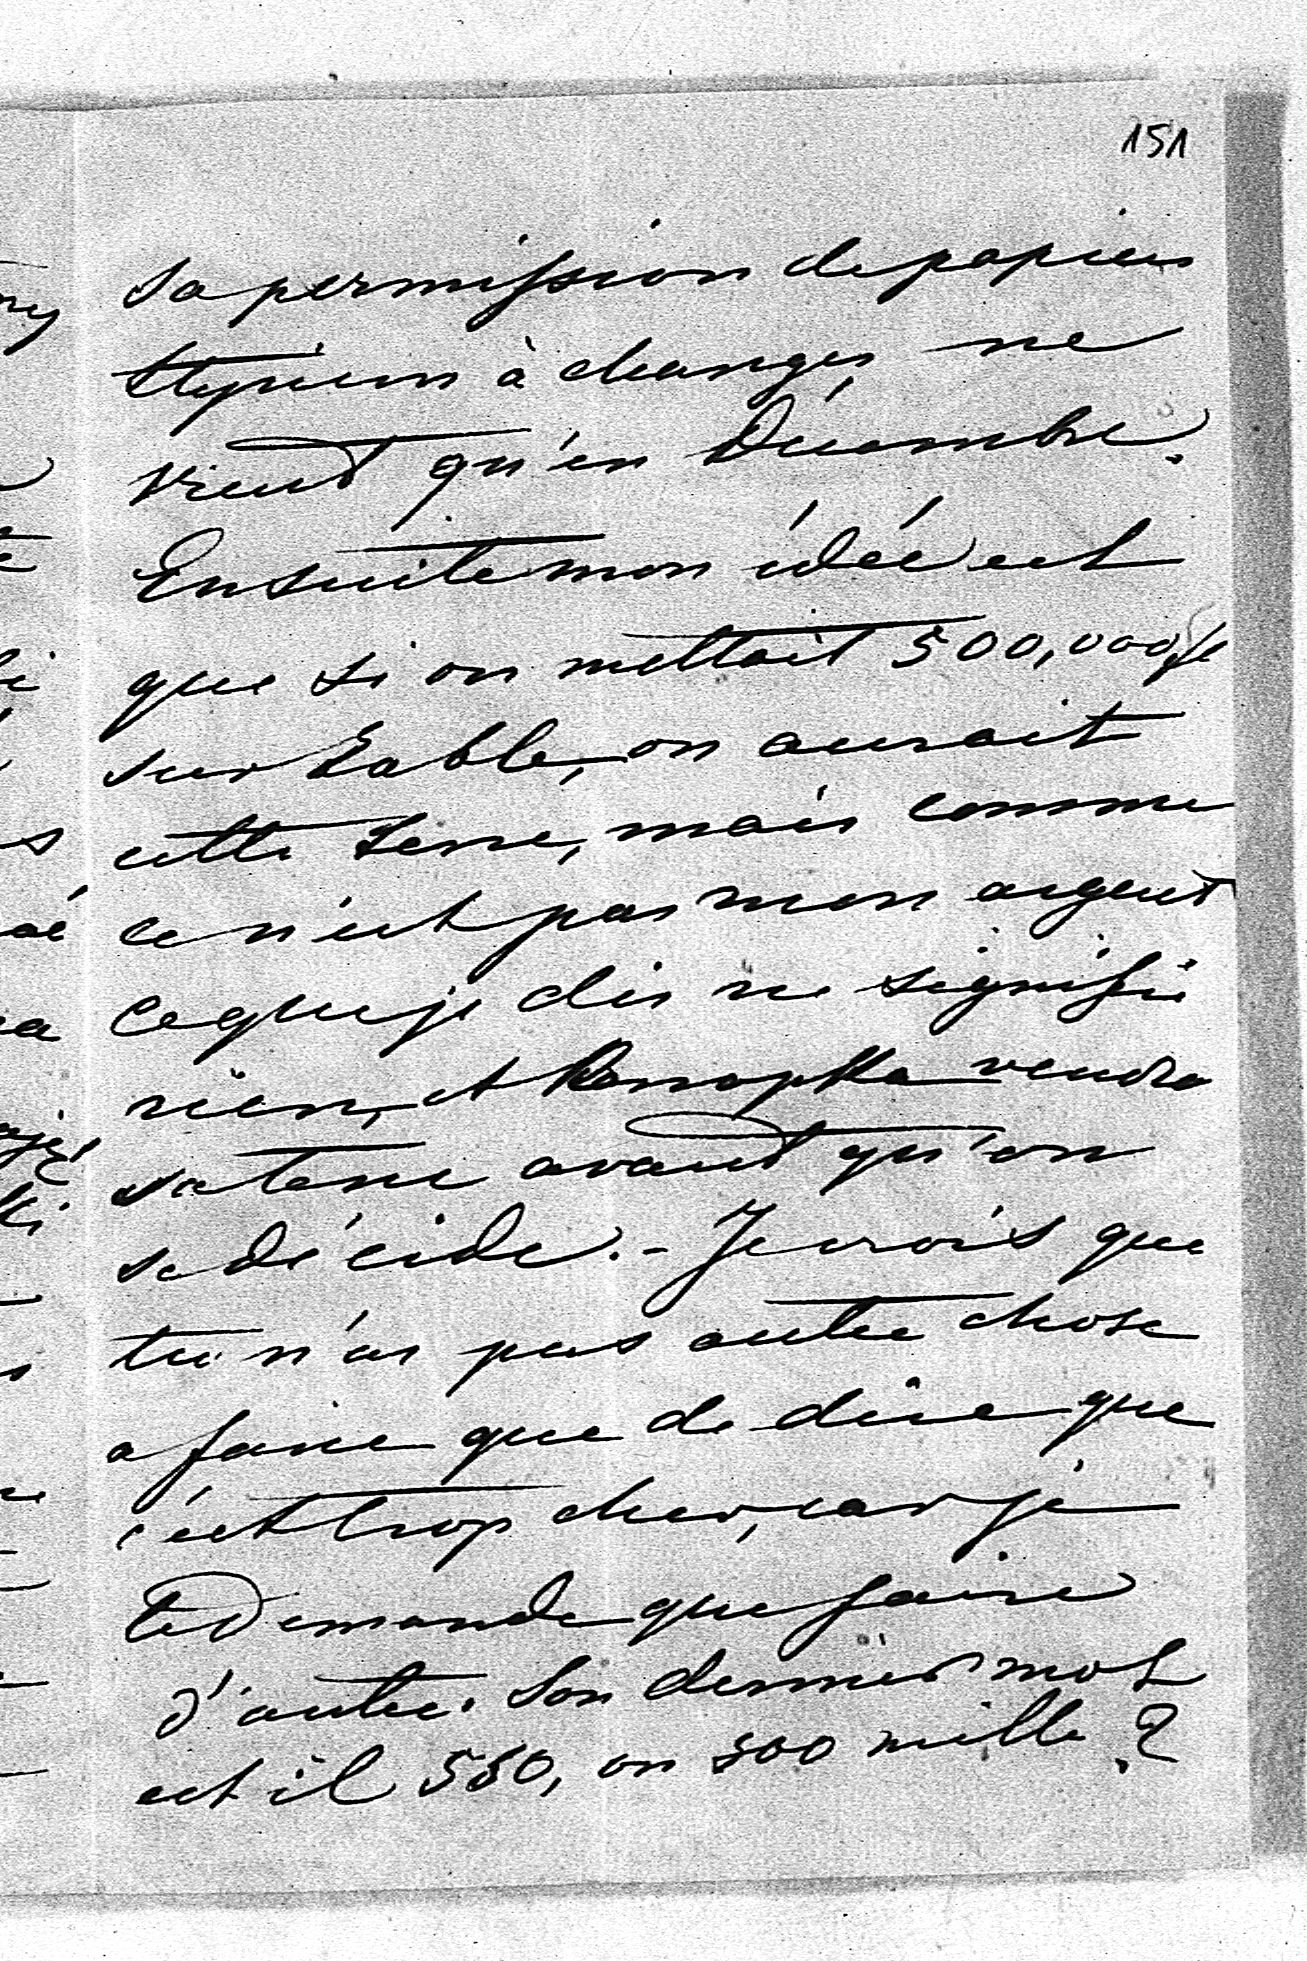 151
sa permission de papiers
à changer ne
vient qu'en Décembre.
Ensuite mon idée est
que si on mettait 500,000
sur table, on aurait
cette terre, mais comme
ce n'est pas mon argent
ce que je dis ne signifie
rien, et Konopka vendra
sa terre avant qu'on
se décide. - Je crois que
tu n'as pas autre chose
a faire que de dire que
c'est trop cher, car je
te demande que faire
d'autre. Son dernier mot
est il 550, ou 500 mille ?